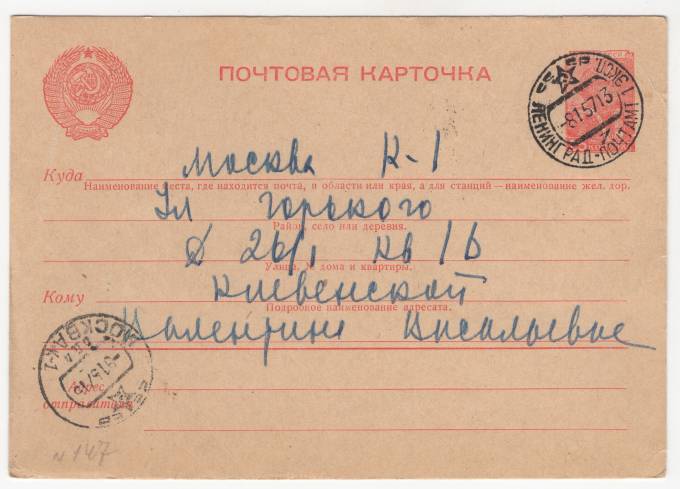 ПОЧТОВАЯ КАРТОЧКА
ЛЕНИНГРАД-ПОЧТАМТ 1 ЭКСП.
-815713
Москва К-1
Куда
Наименование места, где находится почта, и области или края, а для станций—наименование жел. дор.
Ул Горького
Район, село или деревня.
Д 26/1 кв 16
Улица, № дома и квартиры.
Киевенской
Кому
Подробное наименование адресата.
Валентине Васильевне
МОСКВА К-1
Адрес
отправителя
N 147